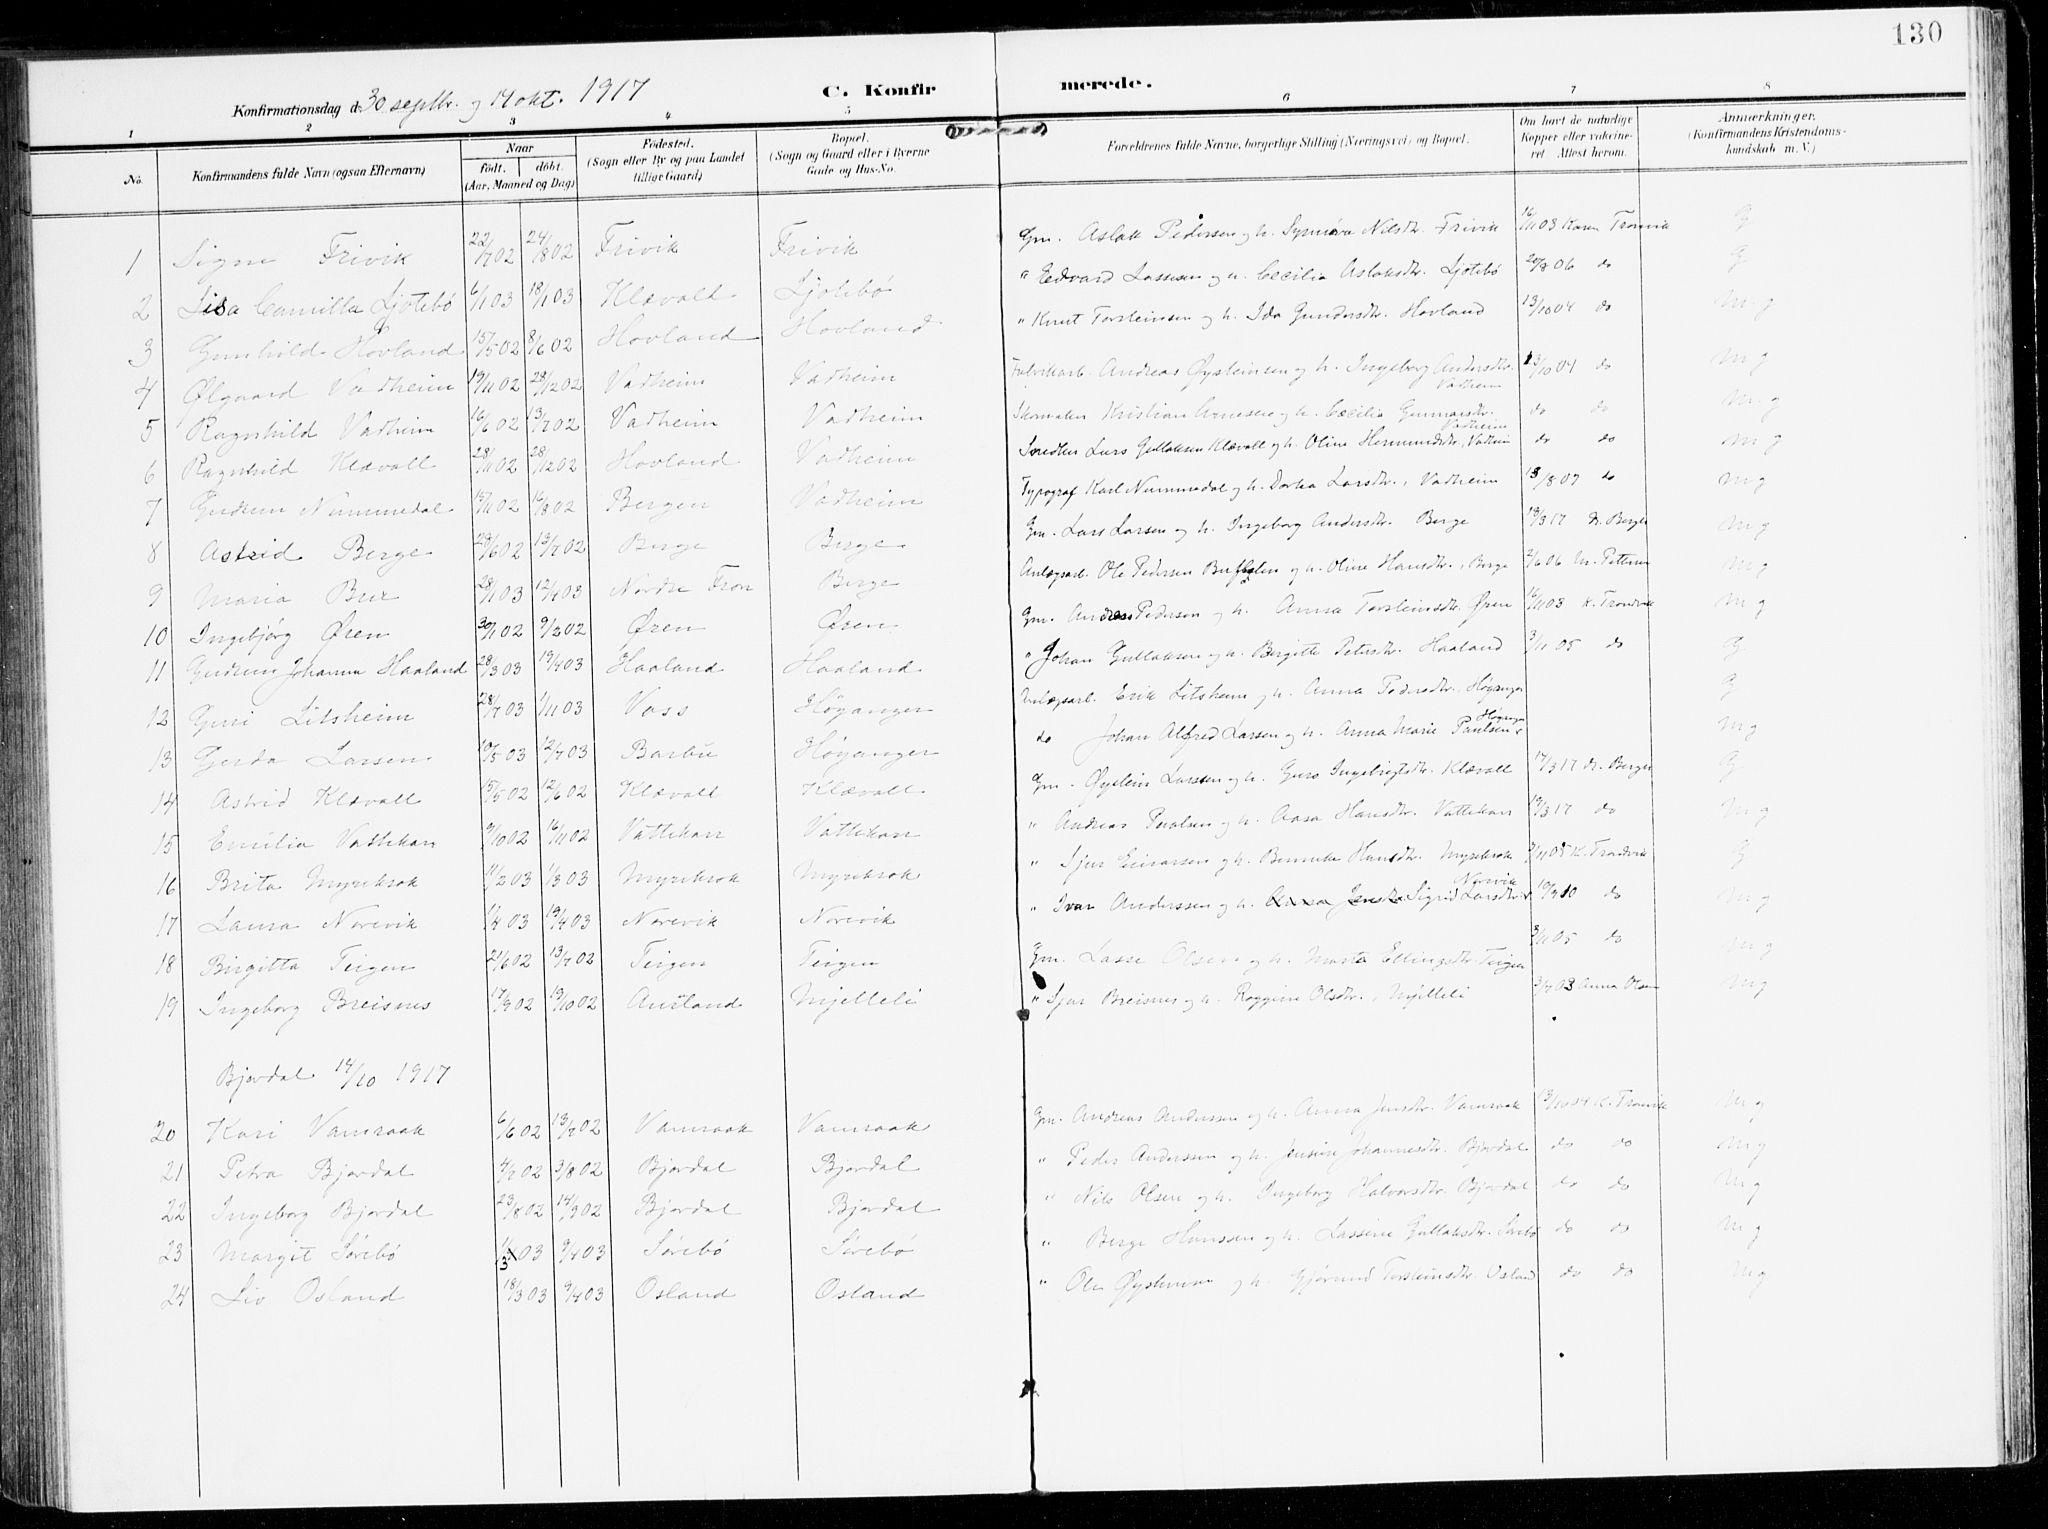 130
Konfirmationsdag d. 30 septbr. og 14 okt. 1917 C. Konfir merede.
1 2 3 4 5 6 7 8
No. Konfirmandens fulde Navn (ogsaa Efternavn) Naar födt. döbt. (Aar, Maaned og Dag) Födested. (Sogn eller By og paa Landet tillige Gaard) Bopæl. (Sogn og Gaard eller i Byerne Gade og Hus-No. Forældrenes fulde Navne, borgerlige Stilling (Næringsvei) og Bopæl. Om havt de naturlige Kopper eller vakcineret. Attest herom. Anmærkninger. (Konfirmandens Kristendomskundskab m. V.)
1 Signe Frivik 22/7 02 24/8 02 Frivik Frivik Gm. Aslak Pedersen og h. Synnøva Nilsdtr. Frivik 16/11 03 Karen Tronvik G
2 Lisa Camilla Ljötebö 6/1 03 18/1 03 Klævold Ljotebö " Edvard Lassesen og h. Cecilia Aslaksdtr. Ljötebö 20/8 06 do G
3 Gunhild Hovland 15/5 02 8/6 02 Hovland Hovland " Knut Torsteinsen og h. Ida Gundersdtr. Hovland 13/10 04 do M.g
4 Ølgaard Vadheim 19/11 02 28/12 02 Vadheim Vadheim Fabrikarb. Andreas Øysteinsen og h. Ingeborg Andersdtr. Vadheim 13/10 04 do M g
5 Ragnhild Vadheim 16/6 02 13/7 02 Vadheim Vadheim Skomaker Kristian Arnesen og h. Cecilia Gunnarsdtr. Vadheim do do M.g
6 Ragnhild Klævold 28/11 02 28/12 02 Hovland Vadheim Snedker Lars Gullaksen Klævold og h. Oline Hermundsdtr. Vadheim do do M g
7 Gudrun Nummedal 02 02 Bergen Vadheim Typograf Karl Nummedal og h. Dorthea Larsdtr., Vadheim 13/8 07 do M g
8 Astrid Berge 29/6 02 13/7 02 Berge Berge Gm. Lars Larsen og h. Ingeborg Andersdtr. Berge 19/3 17 N. Berger M g
9 Maria Bue 28/1 03 12/4 03 Nordre Fron Berge Anlægsarb. Ole Pedersen og h. Oline Hansdtr., Berge 2/6 06 M. Pettersen M g
10 Ingebjörg Øren 30/1 02 9/2 02 Øren Øren Gm. Andreas Pedersen og h. Anna Torsteinsdtr. Øren 16/11 03 K. Trondvik M g
11 Gudrun Johanna Haaland 28/3 03 19/4 03 Haaland Haaland " Johan Gullaksen og h. Bergitte Petersdtr. Haaland 3/11 05 do G
12 Guri Litsheim 28/7 03 1/11 03 Voss Höyanger Anlægsarb. Erik Litsheim og h. Anna Pedersdtr. Höyanger G
13 Gerda Larsen 10/5 03 12/7 03 Barbu Höyanger do Johan Alfred Larsen og h. Anna Marie Paulsen, Höyanger M g
14 Astrid Klævold 15/5 02 12/6 02 Klævold Klævold Gm. Øystein Larsen og h. Guro Ingebrigtsdtr. Klævold 17/3 17 N. Berger G
15 Emilia Vattekar 9/10 02 16/11 02 Vattekar Vattekar " Andreas Paulsen og h. Aasa Hansdtr. Vattekar 19/3 17 do M g
16 Brita Myrekrok 11/2 03 1/3 03 Myrekrok Myrekrok " Sjur Einarsen og h. Hansdtr. Myrekrok 3/11 05 K. Trondvik G
17 Laura Norevik 1/4 03 19/4 03 Norevik Norevik " Ivar Anderssen og h. Sigrid Larsdtr. Norevik 19/9 10 do M g
18 Birgitta Teigen 21/6 02 13/7 02 Teigen Teigen Gm. Lasse Olsen og h. Marta Ellingsdtr. Teigen 3/11 05 do M g
19 Ingeborg Breisnes 17/9 02 19/10 02 Austland Mjelleli " Sjur Breisnes og h. Roggine Olsdtr., Mjelleli 3/7 03 Anna Olsen M g
Bjordal 14/10 1917
20 Kari Vamraak 6/6 02 13/7 02 Vamraak Vamraak Gm. Andreas Anderssen og h. Anna Jensdtr. Vamraak 13/10 04 K. Tronvik M g
21 Petra Bjordal 4/7 02 3/8 02 Bjordal Bjordal " Peder Anderssen og h. Jensine Johannesdtr. Bjordal do do M g
22 Ingeborg Bjordal 23/8 02 14/9 02 Bjordal Bjordal " Nils Olsen og h. Ingeborg Halvorsdtr. Bjordal do do M g
23 Margit Sörebö 11/3 03 9/4 03 Sörebö Sörebö " Berge Hanssen og h. Lassine Gullaksdtr. Sörebö do do M g
24 Liv Osland 18/3 03 9/4 03 Osland Osland " Ole Øysteinsen og h. Gjörund Torsteinsdtr. Osland do do M g